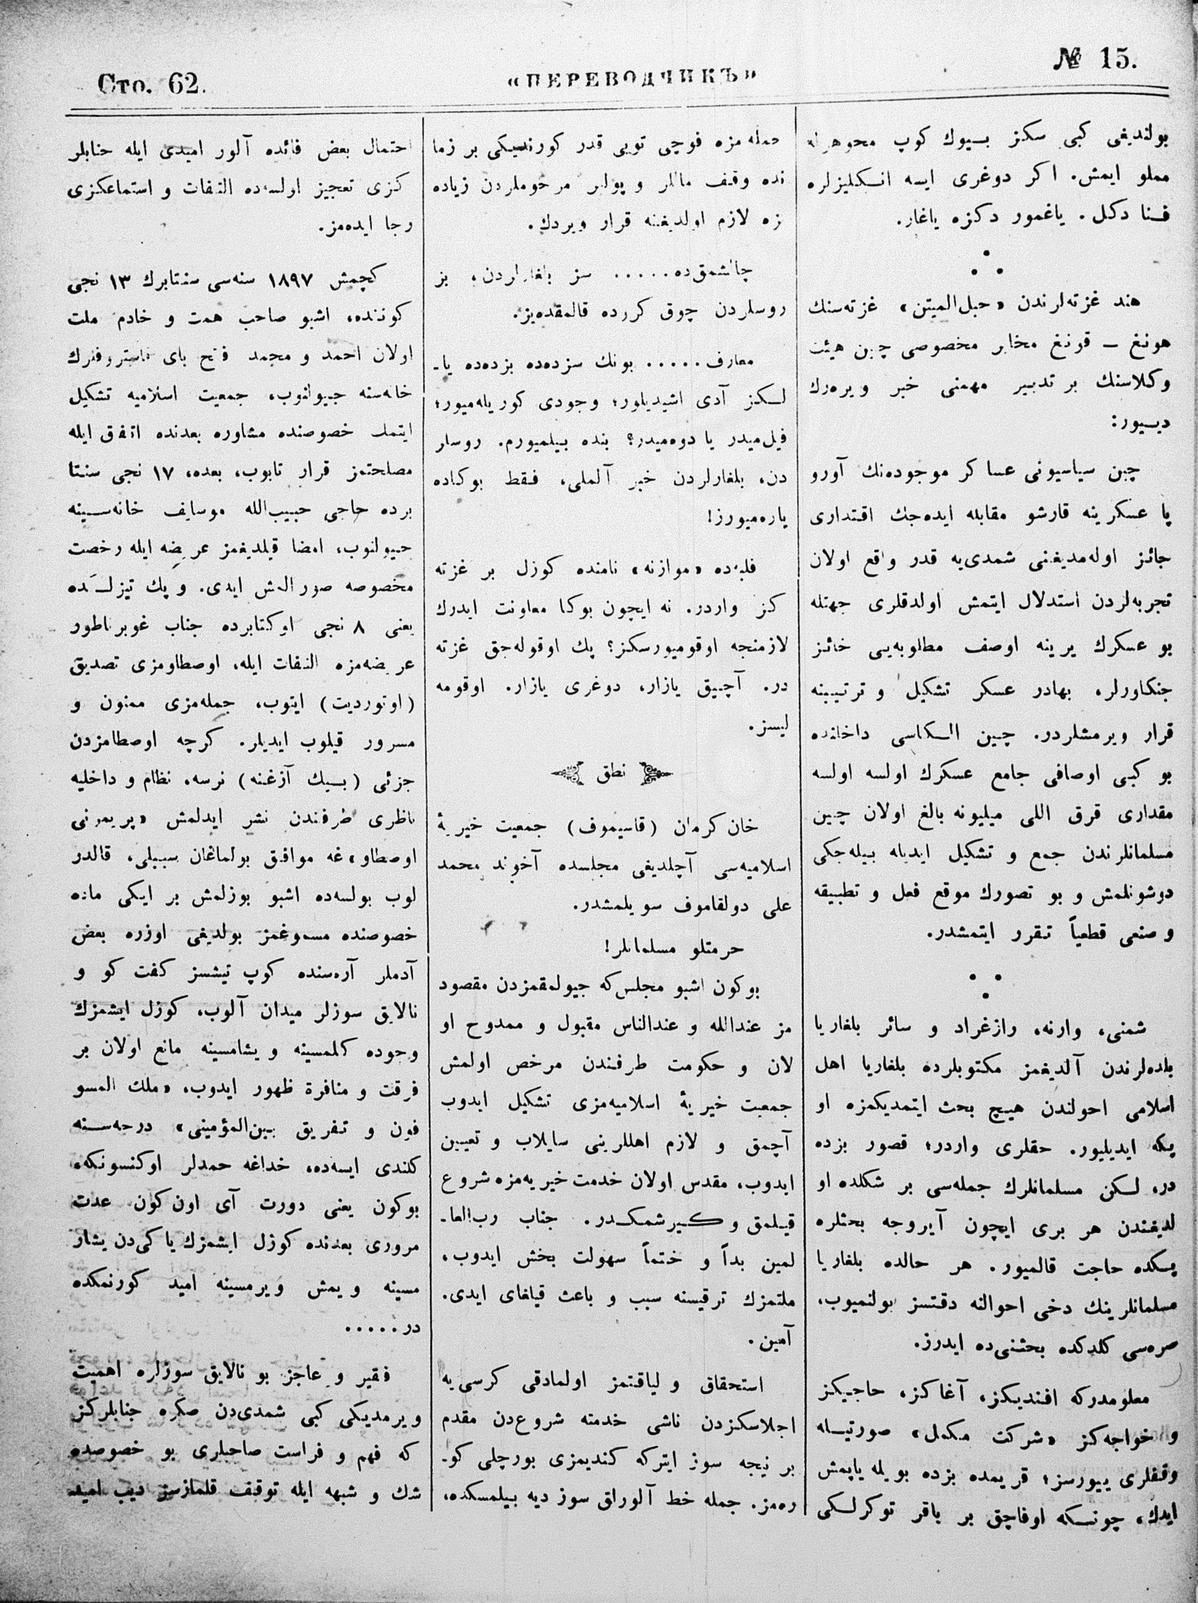 Сто. 62.
«ПЕРЕВОДЧИКЪ»
№ 15.
بولنديغی كبی سكز بيوك كوپ مجوهرله
مملو ايمش. اكر دوغری ايسه انكليزلره
فنا دكل. ياغمور دكزه ياغار.
هند غزته‌لرندن «حبل المتين» غزته‌سنك
هونغ ــ قونغ مخابر مخصوصی چين هيئت
وكلاسنك بر تدبير مهمنی خبر ويره‌رك
ديیور:
چين سياسيونی عساكر موجوده‌نك آورو
پا عسكرينه قارشو مقابله ايده‌جك اقتداری
جائز اوله‌مديغنی شمدی‌يه قدر واقع اولان
تجربه‌لردن استدلال ايتمش اولدقلری جهتله
بو عسكرك يرينه اوصف مطلوبه‌يی حائز
جنكاورلر، بهادر عسكر تشكيل و ترتيبنه
قرار ويرمشلردر. چين الكاسی داخلنده
بو كبی اوصافی جامع عسكرك اولسه اولسه
مقداری قرق اللی ميليونه بالغ اولان چين
مسلمانلرندن جمع و تشكيل ايديله بيله‌جكی
دوشونلمش و بو تصورك موقع فعل و تطبيقه
وضعی قطعياً تقرر ايتمشدر.
شمنی، وارنه، رازغراد و سائر بلغاريا
بلده‌لرندن آلديغمز مكتوبلرده بلغاريا اهل
اسلامی احولندن هيچ بحث ايتمديكمزه او
پكه ايديليور. حقلری واردر؛ قصور بزده
در، لكن مسلمانلرك جمله‌سی بر شكلده او
لديغندن هر بری ايچون آيروجه بحثلره
پكده حاجت قالميور. هر حالده بلغاريا
مسلمانلرينك دخی احوالنه دقتسز بولنميوب،
صره‌سی كلدكده بحثنی‌ده ايدرز.
معلومدركه افنديكز، آغاكز، حاجيكز
و خواجه‌كز «شركت مكمل» صورتيله
وقفلری ييورسز؛ قريمده بزده بويله ياپمش
ايدك، چونكه اوفاچق بر باقر توكرلكی
جمله‌مزه فوچی توبی قدر كورنديكی بر زما
نده وقف ماللر و پوللر مرحوملردن زياده
بزه لازم اولديغنه قرار ويردك.
چالشمق‌ده..... سز بلغارلردن، بز
روسلردن چوق كروده قالمقده‌يز.
معارف..... بونك سزده‌ده بزده‌ده يا-
لكز آدی اشيديلور؛ وجودی كوريله‌ميور؛
فيل‌ميدر يا دوه‌ميدر؟ بنده بيلميورم. روسلر
دن، بلغارلردن خبر آلملی، فقط بوكاده
ياره‌ميورز!
فلبه‌ده «موازنه» نامنده كوزل بر غزته
كز واردر. نه ايچون بوكا معاونت ايدرك
لازمنجه اوقوميورسكز؟ پك اوقوله‌جق غزته
در. آچيق يازار، دوغری يازار. اوقومه
ليسز.
نطق
خان كرمان (قاسيموف) جمعيت خيريۀ
اسلاميه‌سی آچلديغی مجلسده آخوند محمد
علی دولقاموف سويلمشدر.
حرمتلو مسلمانلر!
بوكون اشبو مجلس‌كه جيولمقمزدن مقصود
مز عندالله و عندالناس مقبول و ممدوح او
لان و حكومت طرفندن مرخص اولمش
جمعيت خيريۀ اسلاميه‌مزی تشكيل ايدوب
آچمق و لازم اهللرينی سايلاب و تعيين
ايدوب، مقدس اولان خدمت خيريه‌مزه شروع
قيلمق و كيرشمكدر. جناب رب‌العا-
لمين بدأ و ختماً سهولت بخش ايدوب،
ملتمزك ترقيسنه سبب و باعث قيلغای ايدی.
آمين.
استحقاق و لياقتمز اولمادقی كرسی‌يه
اجلاسكزدن ناشی خدمته شروع‌دن مقدم
بر نيجه سوز ايتركه كنديمزی بورچلی كو-
ره‌مز. جمله خط آلوراق سوز ديه بيلمسكده،
احتمال بعض فائده آلور اميدی ايله جنابلر
كزی تعجيز اولسه‌ده التفات و استماعكزی
رجا ايده‌مز.
كچمش ١٨٩٧ سنه‌سی سنتابرك ١٣ نجی
كوننده، اشبو صاحب همت و خادم ملت
اولان احمد و محمد فتح بای
خانه‌سنه جيولنوب، جمعيت اسلاميه تشكيل
ايتمك خصوصنده مشاوره بعدنده اتفق ايله
مصلحتمز قرار تابوب، بعده، ١٧ نجی سنتا
برده حاجی حبيب‌الله موسايف خانه‌سينه
جيولنوب، امضا قيلديغمز عريضه ايله رخصت
مخصوصه صورالمش ايدی. و پك تيزلكده
يعنی ٨ نجی اوكتابرده جناب غوبرناطور
عريضه‌مزه التفات ايله، اوصطاومزی تصديق
(اوتورديت) ايتوب، جمله‌مزی ممنون و
مسرور قيلوب ايديلر. كرچه اوصطامزدن
جزئی (بيك آزغنه) نرسه، نظام و داخليه
ناظری طرفندن نشر ايدلمش «پريمرنی
اوصطاو» غه موافق بولماغان سببلی، قالدر
لوب بولسه‌ده اشبو بوزلمش بر ايكی ماده
خصوصنده مسموغمز بولديغی اوزره بعض
آدملر آره‌سنده كوپ تيشسز كفت كو و
نالايق سوزلر ميدان آلوب، كوزل ايشمزك
وجوده كلمسينه و يشامسينه مانع اولان بر
فرقت و منافرة ظهور ايدوب، «ملك المسو
فون و تفريق بين‌المؤمينی» درجه‌سنه
كلندی ايسه‌ده، خداغه حمدلر اوكنسونكه،
بوكون يعنی دورت آی اون كون عدت
مروری بعدنده كوزل ايشمزك ياكی‌دن يشار
مسينه و يمش ويرمسينه اميد كورنمكده
در.....
فقير و عاجز بو نالايق سوزلره اهميت
ويرمديكی كبی شمدی‌دن صكره جنابلركز
كه فهم و فراست صاحبلری بو خصوصده
شك و شبهه ايله توقف قلمازسز ديب اميد